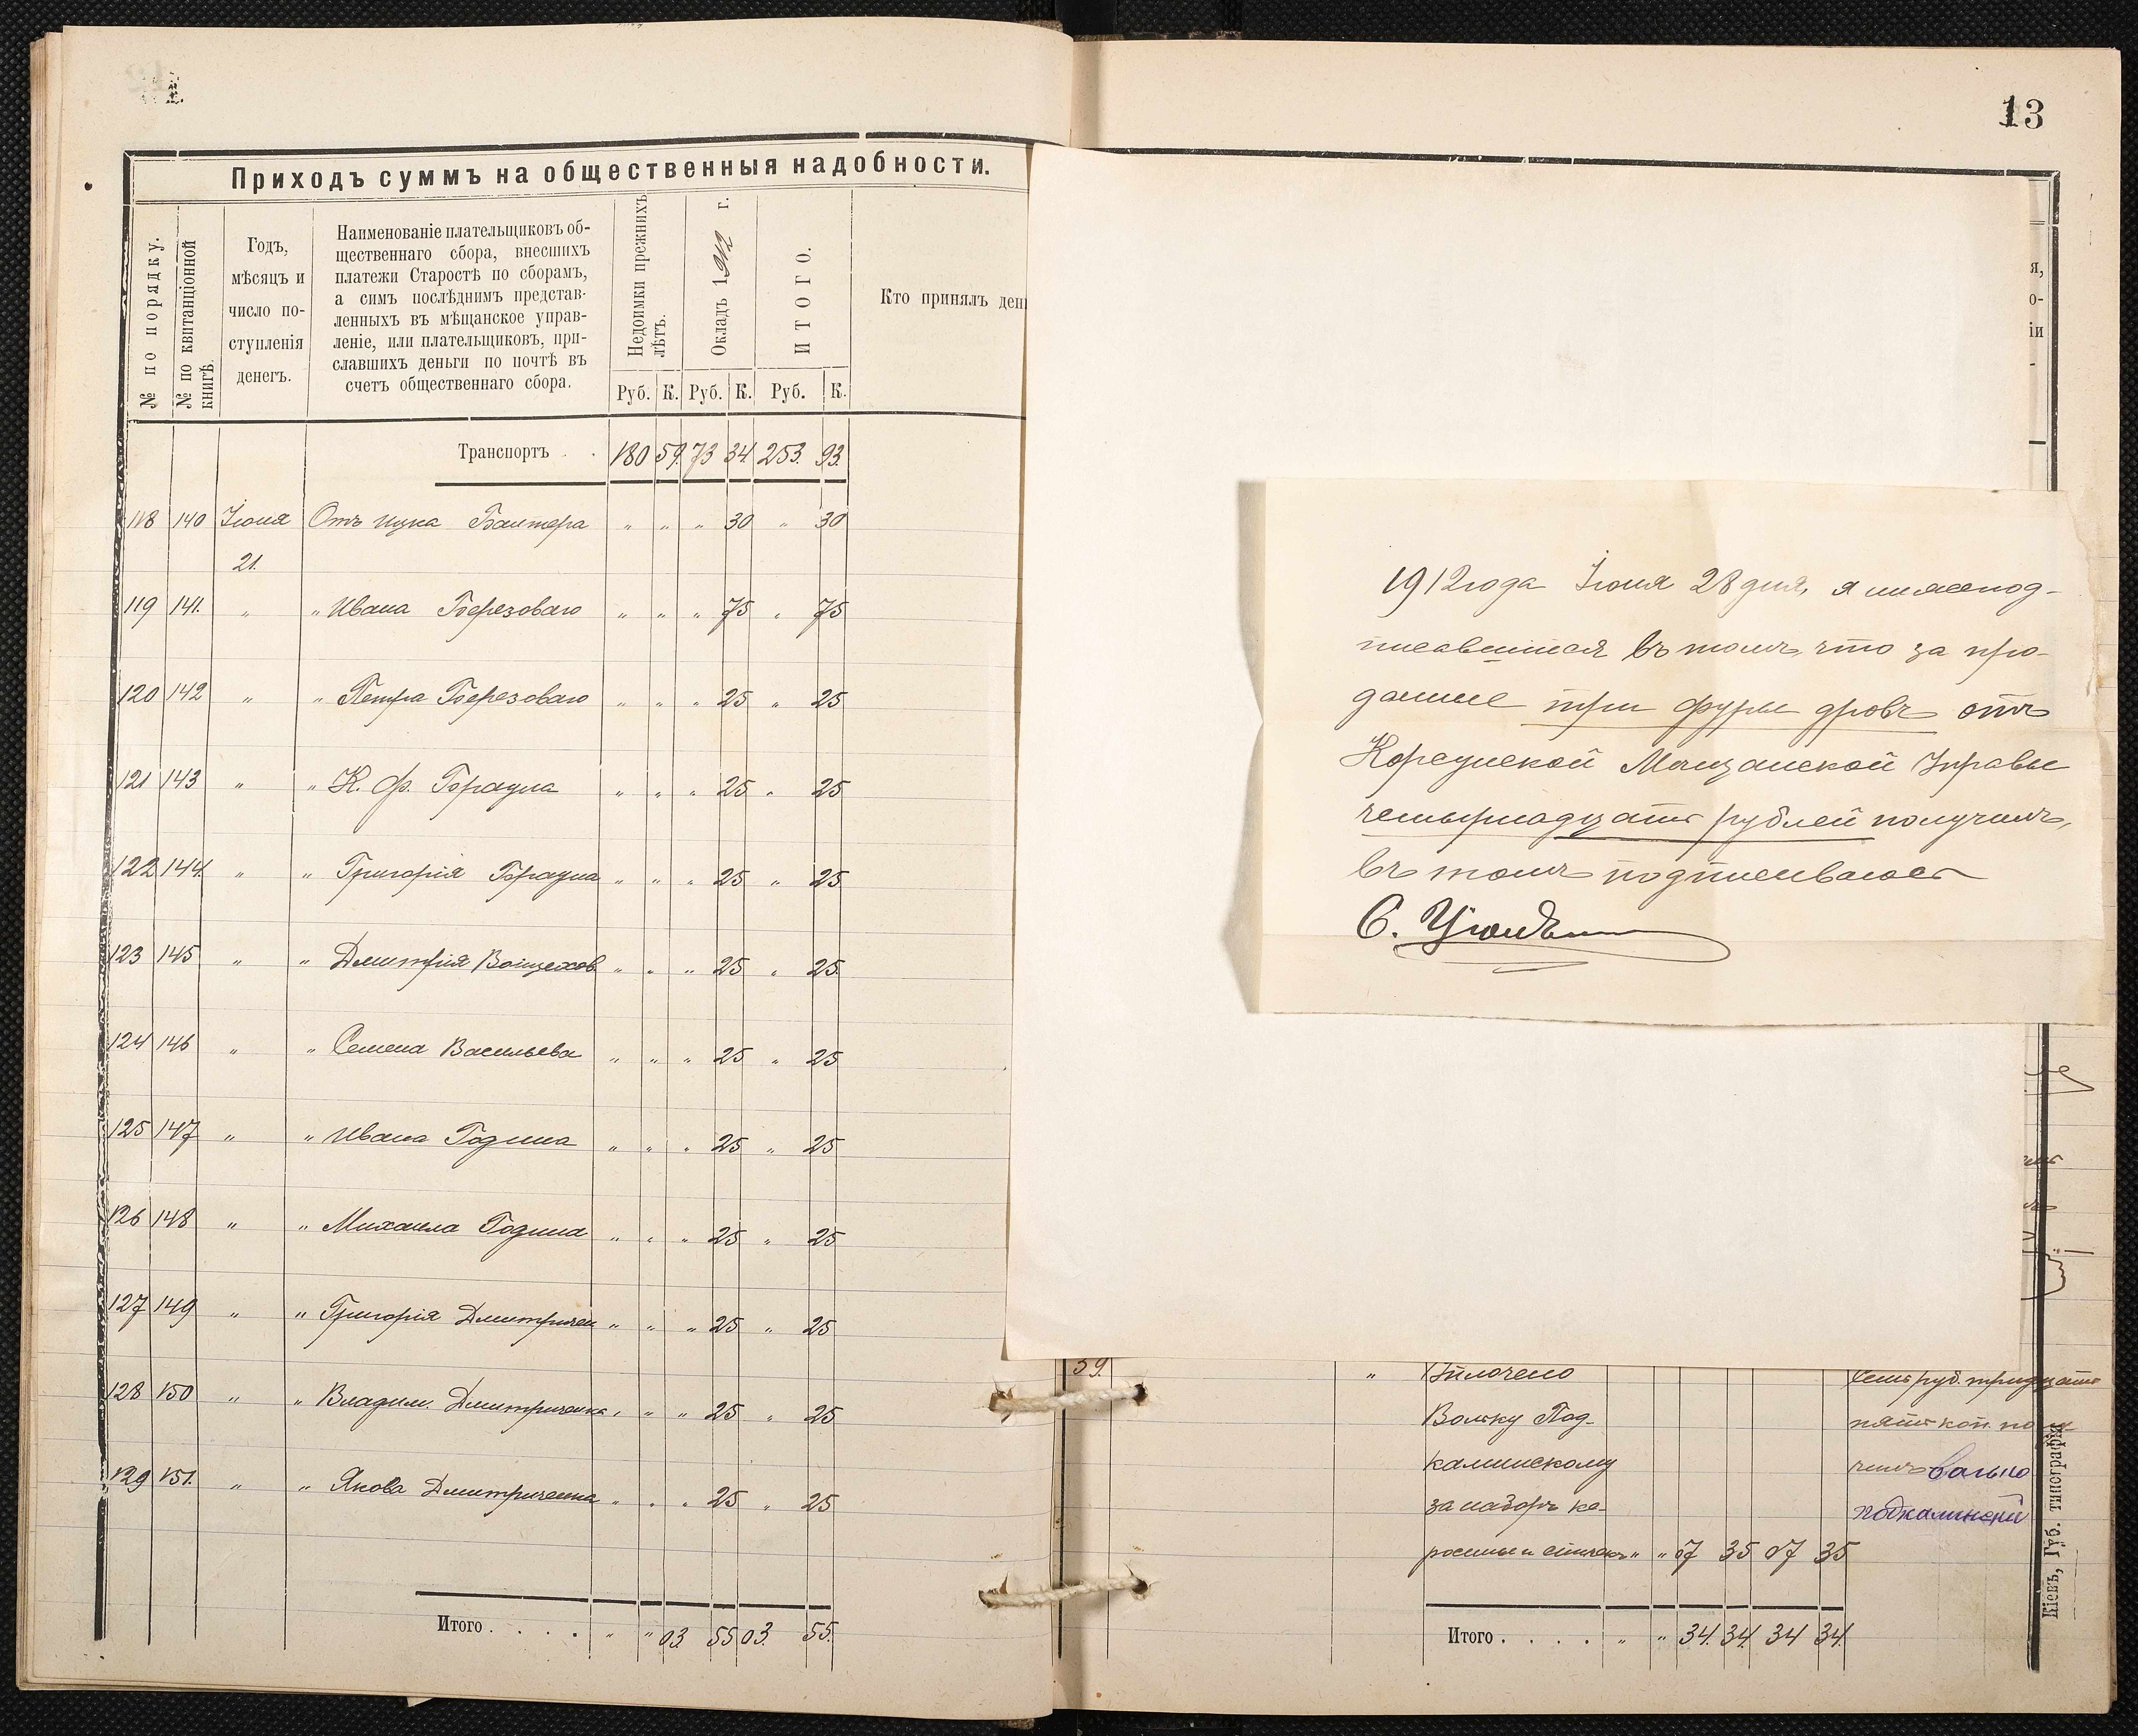 13
Приходъ суммъ на общественныя надобности.
№ по порядку.
№ по квитанціонной книгѣ.
Годъ,
мѣсяцъ и
число по-
ступленія
денегъ.
Наименованіе плательщиковъ об-
щественнаго сбора, внесшихъ
платежи Старостѣ по сборамъ,
а симъ послѣднимъ представ-
ленныхъ въ мѣщанское управ-
леніе, или плательщиковъ, при-
славшихъ деньги по почтѣ въ
счетъ общественнаго сбора.
Недоимки прежнихъ лѣтъ.
Окладъ 1912 г.
ИТОГО.
Кто принялъ ден
Руб. К. Руб. К. Руб. К.
Транспортъ . . 180 59. 73 34. 253. 93.
118 140 Іюня Отъ Ицка " " " 30 " 30
21.
119 141. " " Ивана Березоваго " " " 75 " 75
120 142 " " Петра Березоваго " " " 25 " 25
121 143 " " К. Ф. Брауна " " " 25 " 25
122 144. " " Григорія Брауна " " " 25 " 25
123 145 " " Дмитрія Войцехов " " " 25 " 25
124 146 " " Семена Васильева " " " 25 " 25
125 147 " " Ивана Година " " " 25 " 25
126 148 " " Михаила Година " " " 25 " 25
127 149 " " Григорія Дмитричен " " " 25 " 25
128 150 " " Владим. Дмитриченка " " " 25 " 25
129 151. " " Якова Дмитриченка " " " 25 " 25
Итого . . . . " " 03 55 03. 55.
я,
о-
іи
-
1912 года Іюня 28 дня, я нижепод-
писавшійся въ томъ, что за про-
данные три фуры дровъ отъ
Корсунской Мещанской Управы
четырнадцать рублей получилъ,
въ томъ подписываюсь
С.
39. " Уплочено Семь руб. тридцать
Вольку Под- пять коп. полу
каминскому чилъ Волько
за наборъ ке- подкаминскій
росины и спичекъ " " 07 35 07 35
Итого . . . . " " 34. 34. 34 34.
Кіевъ, Губ. типографія